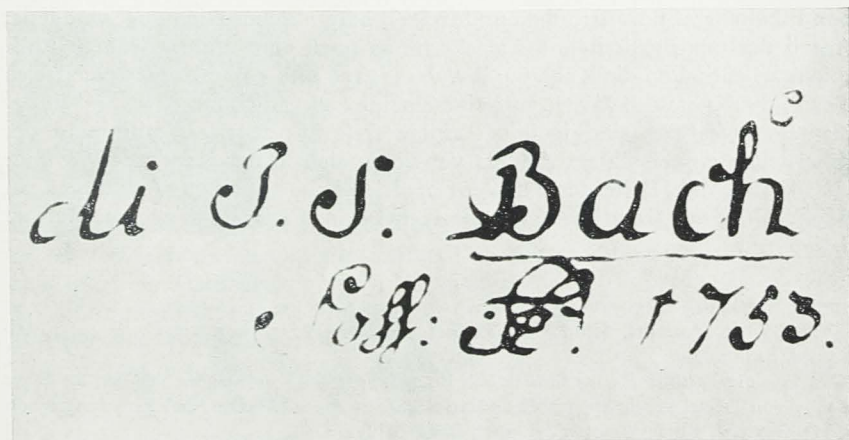 di J. S. Bach
Poss: 1753.